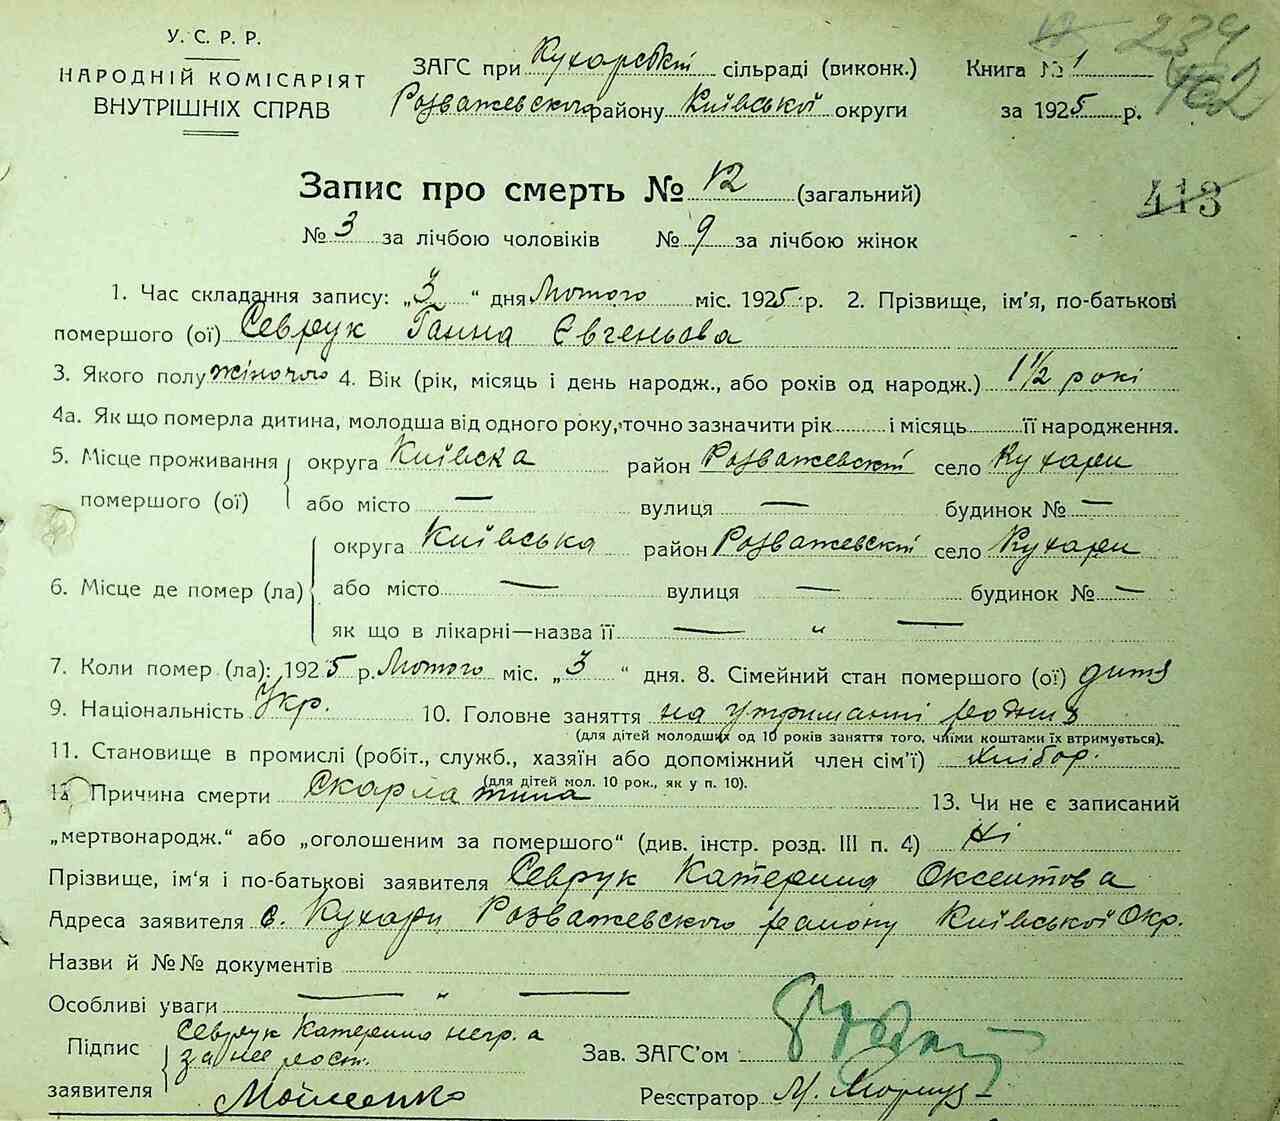 У. С. Р. Р.
НАРОДНІЙ КОМІСАРІЯТ
ВНУТРІШНІХ СПРАВ
ЗАГС при Кухарській сільраді (виконк.)
Розважевского району Київської округи
Книга № 1
за 1925 р.
234
402
413
Запис про смерть № 12 (загальний)
№ 3 за лічбою чоловіків № 9 за лічбою жінок
1. Час складання запису: „3“ дня Лютого міс. 1925 р. 2. Прізвище, ім'я, по-батькові
помершого (ої) Севрук Ганна Євгеньова
3. Якого полу жіночого 4. Вік (рік, місяць і день народж., або років од народж.) 1 1/2 рокі
4а. Як що померла дитина, молодша від одного року, точно зазначити рік і місяць її народження.
5. Місце проживання округа Київска район Розважевскій село Кухари
помершого (ої) або місто — вулиця — будинок № —
округа Київська район Розважевскій село Кухари
6. Місце де помер (ла) або місто — вулиця — будинок № —
як що в лікарні—назва її — „ —
7. Коли помер (ла): 1925 р. Лютого міс. „3“ дня. 8. Сімейний стан помершого (ої) дитя
9. Національність Укр. 10. Головне заняття на утриманні родних
(для дітей молодших од 10 років заняття того, чиїми коштами їх втримується).
11. Становище в промислі (робіт., служб., хазяїн або допоміжний член сім'ї) хлібор.
(для дітей мол. 10 рок., як у п. 10).
12 Причина смерти Скарлатина 13. Чи не є записаний
„мертвонародж.“ або „оголошеним за помершого“ (див. інстр. розд. III п. 4) Ні
Прізвище, ім'я і по-батькові заявителя Севрук Катерина Оксентова
Адреса заявителя с. Кухари Розважевского району Київської Окр.
Назви й №№ документів
Особливі уваги — „ —
Підпис Севрук Катерина негр. а
за нее рост.
заявителя
Зав. ЗАГС'ом
Реєстратор М.